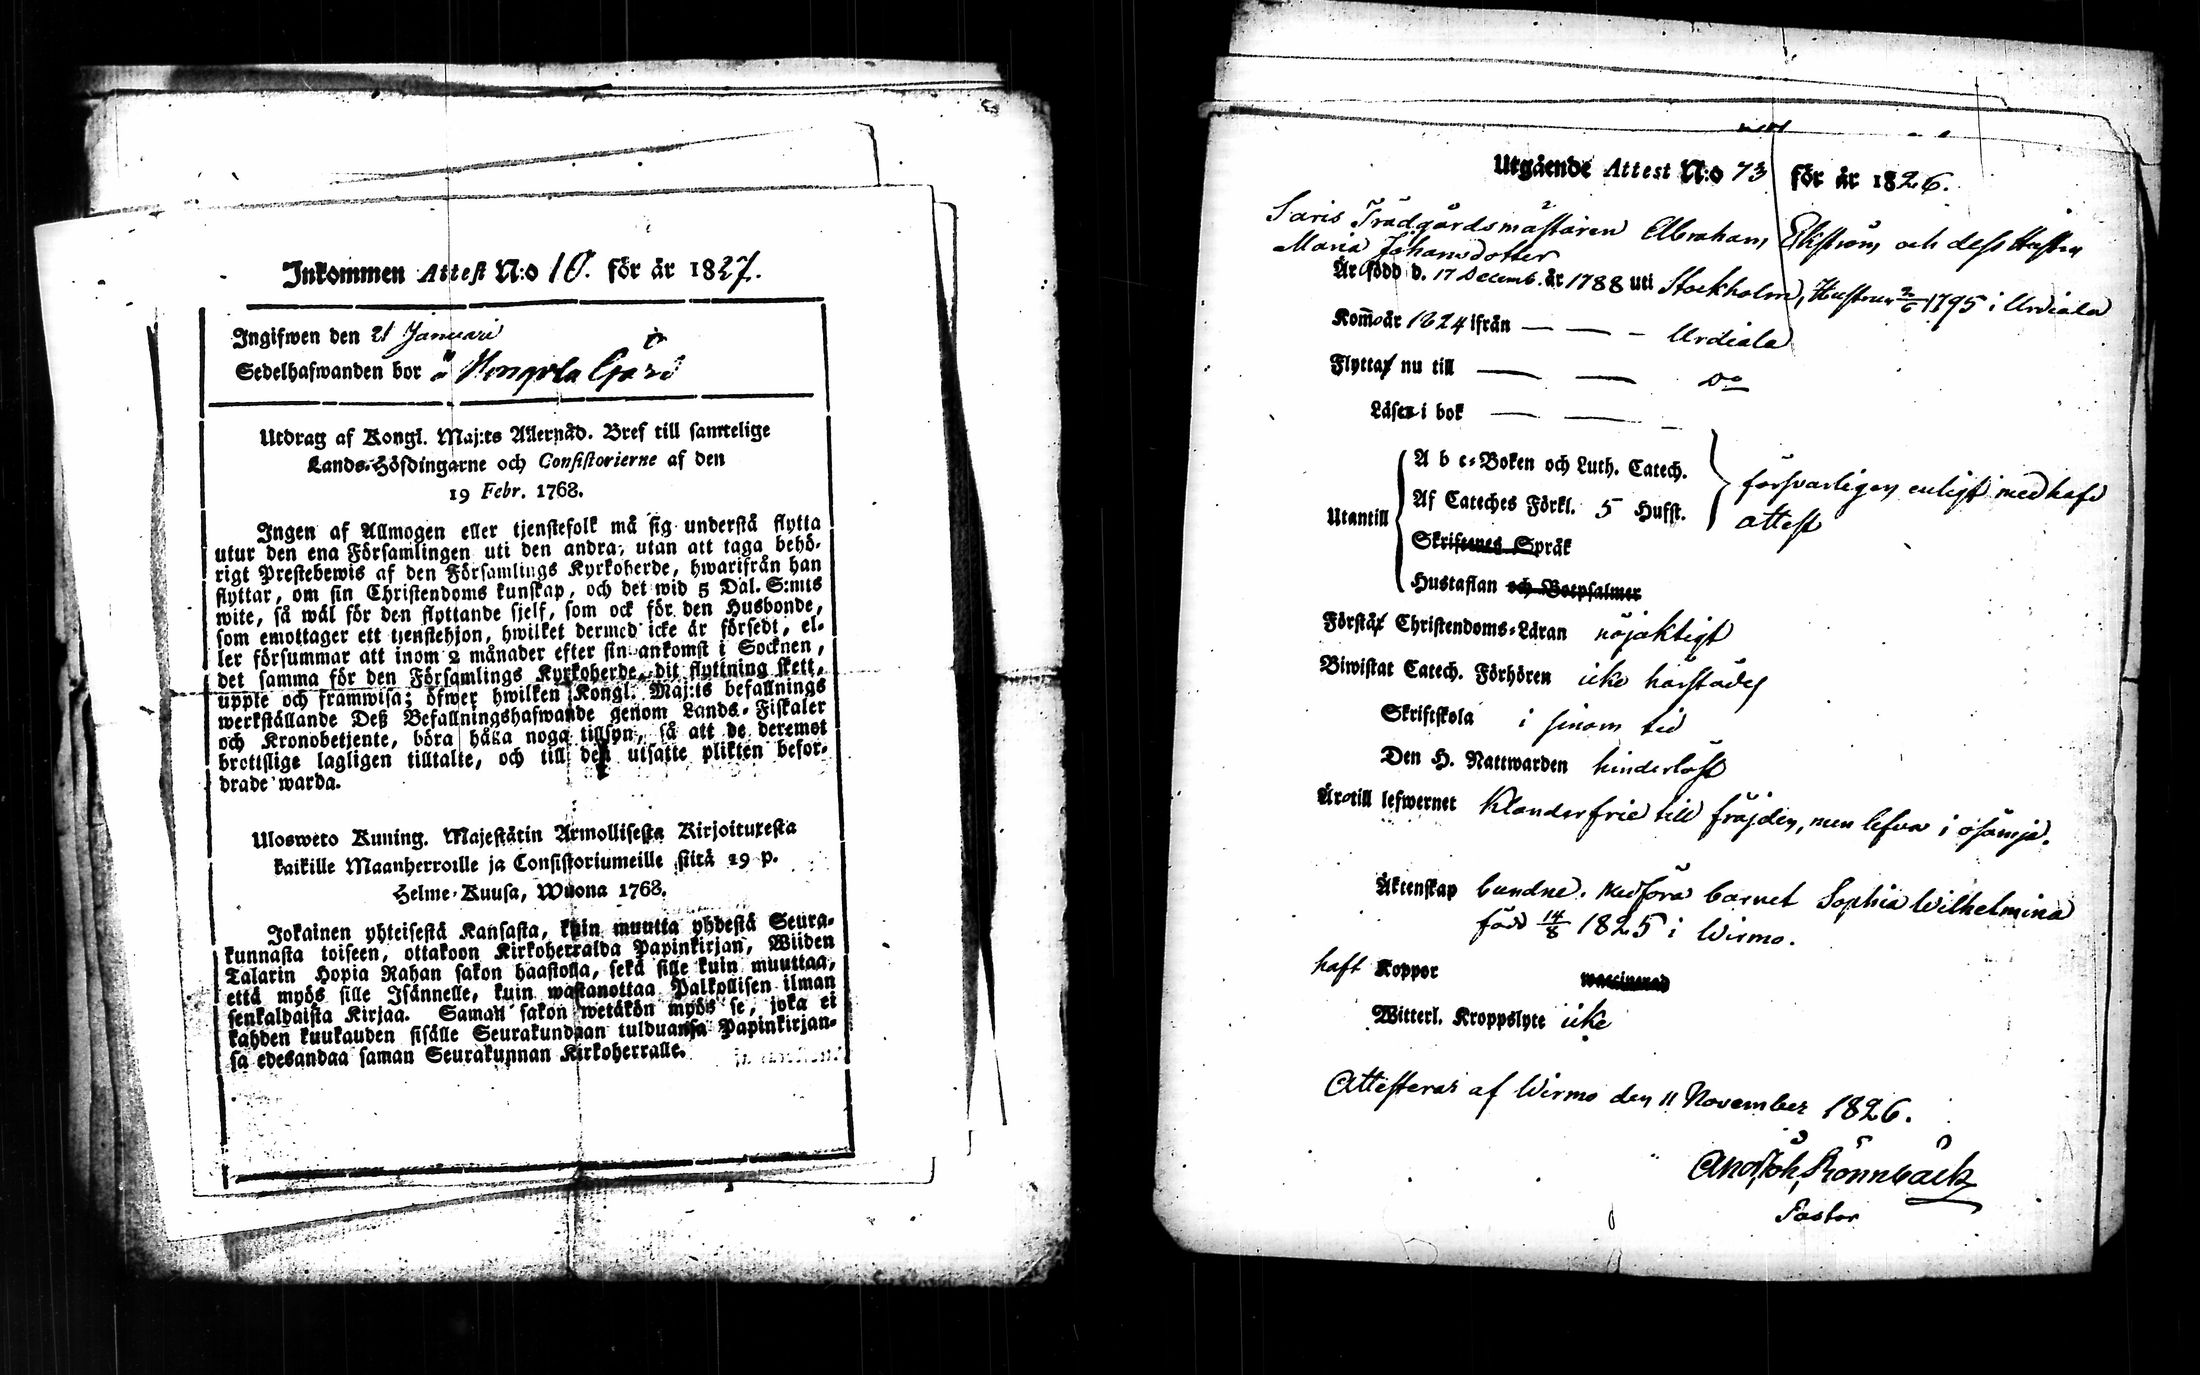 Inkommen Attest N:o 10. för år 1827.
Ingifwen den 21 Januari
Sedelhafwanden bor å Hongola Gård
Utdrag af Kongl. Maj:ts Allernåd. Bref till samtelige
Lands-Höfdingarne och Consistorierne af den
19 Febr. 1768.
Ingen af Allmogen eller tjenstefolk må sig understå flytta
utur den ena Församlingen uti den andra, utan att taga behö-
rigt Prestebewis af den Församlings Kyrkoherde, hwarifrån han
flyttar, om sin Christendoms kunskap, och det wid 5 Dal. S:mts
wite, så wäl för den flyttande sjelf, som ock för den Husbonde,
som emottager ett tjenstehjon, hwilket dermed icke är försedt, el-
ler försummar att inom 2 månader efter sin ankomst i Socknen,
det samma för den Församlings Kyrkoherde, dit flyttning skett,
uppte och framwisa; öfwer hwilken Kongl. Maj:ts befallnings
werkställande Deß Befallningshafwande genom Lands-Fiskaler
och Kronobetjente, böra hålla noga tillsyn, så att de deremot
brottslige lagligen tilltalte, och till den utsatte plikten befor-
drade warda.
Ulosweto Kuning. Majestätin Armollisesta Kirjoituxesta
kaikille Maanherroille ja Consistoriumeille siitä 19 p.
Helme-Kuusa, Wuona 1768.
Jokainen yhteisestä Kansasta, kuin muutta yhdestä Seura-
kunnasta toiseen, ottakoon Kirkoherralda Papinkirjan, Wiiden
Talarin Hopia Rahan sakon haastolla, sekä sille kuin muuttaa,
että myös sille Isännelle, kuin wastanottaa Palkollisen ilman
senkaldaista Kirjaa. Saman sakon wetäkön myös se, joka ei
kahden kuukauden sisälle Seurakundaan tulduansa Papinkirjan-
sa edesandaa saman Seurakunnan Kirkoherralle.
Utgående Attest N:o 73 för år 1826.
Saris Trädgårdsmästaren Abraham Ekström och dess Hustru
Maria Johansdotter
Är född d. 17 Decemb. år 1788 uti Stockholm, Hustrun 2/6 1795 i Urdiala
Kom år 1824 ifrån — — – Urdiala
Flyttar nu till — — Do
Läser i bok — — –
Utantill
A b c-Boken och Luth. Catech.
Af Cateches Förkl. 5 Hufst.
Skriftenes Språk
Hustaflan och Botpsalmer
försvarligen enligt medhafd
attest
Förstår Christendoms-Läran nöjaktigt
Biwistat Catech. Förhören icke härstädes
Skriftskola i sinom tid
Den H. Nattwarden hinderlöst
Äro till lefwernet Klanderfrie till fräjden, men lefva i osämja.
Äktenskap bundne. Medföra barnet Sophia Wilhelmina
född 14/8 1825 i Wirmo.
haft Koppor waccinerad
Witterl. Kroppslyte icke
Attesteras af Wirmo den 11 November 1826.
And. Joh. Rönnbäck
Pastor